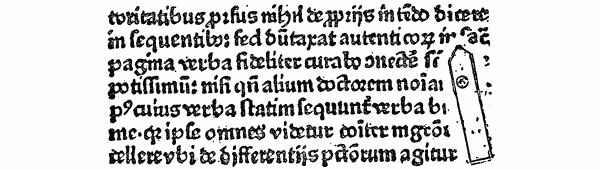 toritatibus prſus nihil de ꝓprijs in tēdo dicere
in ſequentibꝰ: ſed dūtaxat autenticoꝝ in ſac̄
pagina verba fideliter curabo ↄnectē
potiſſimū: niſi qn̄ alium doctorem
pꝰ cuius verba ſtatim ſequunt̄ verba
me. ipſe omnes videtur
tellere vbi de differentijs agitur